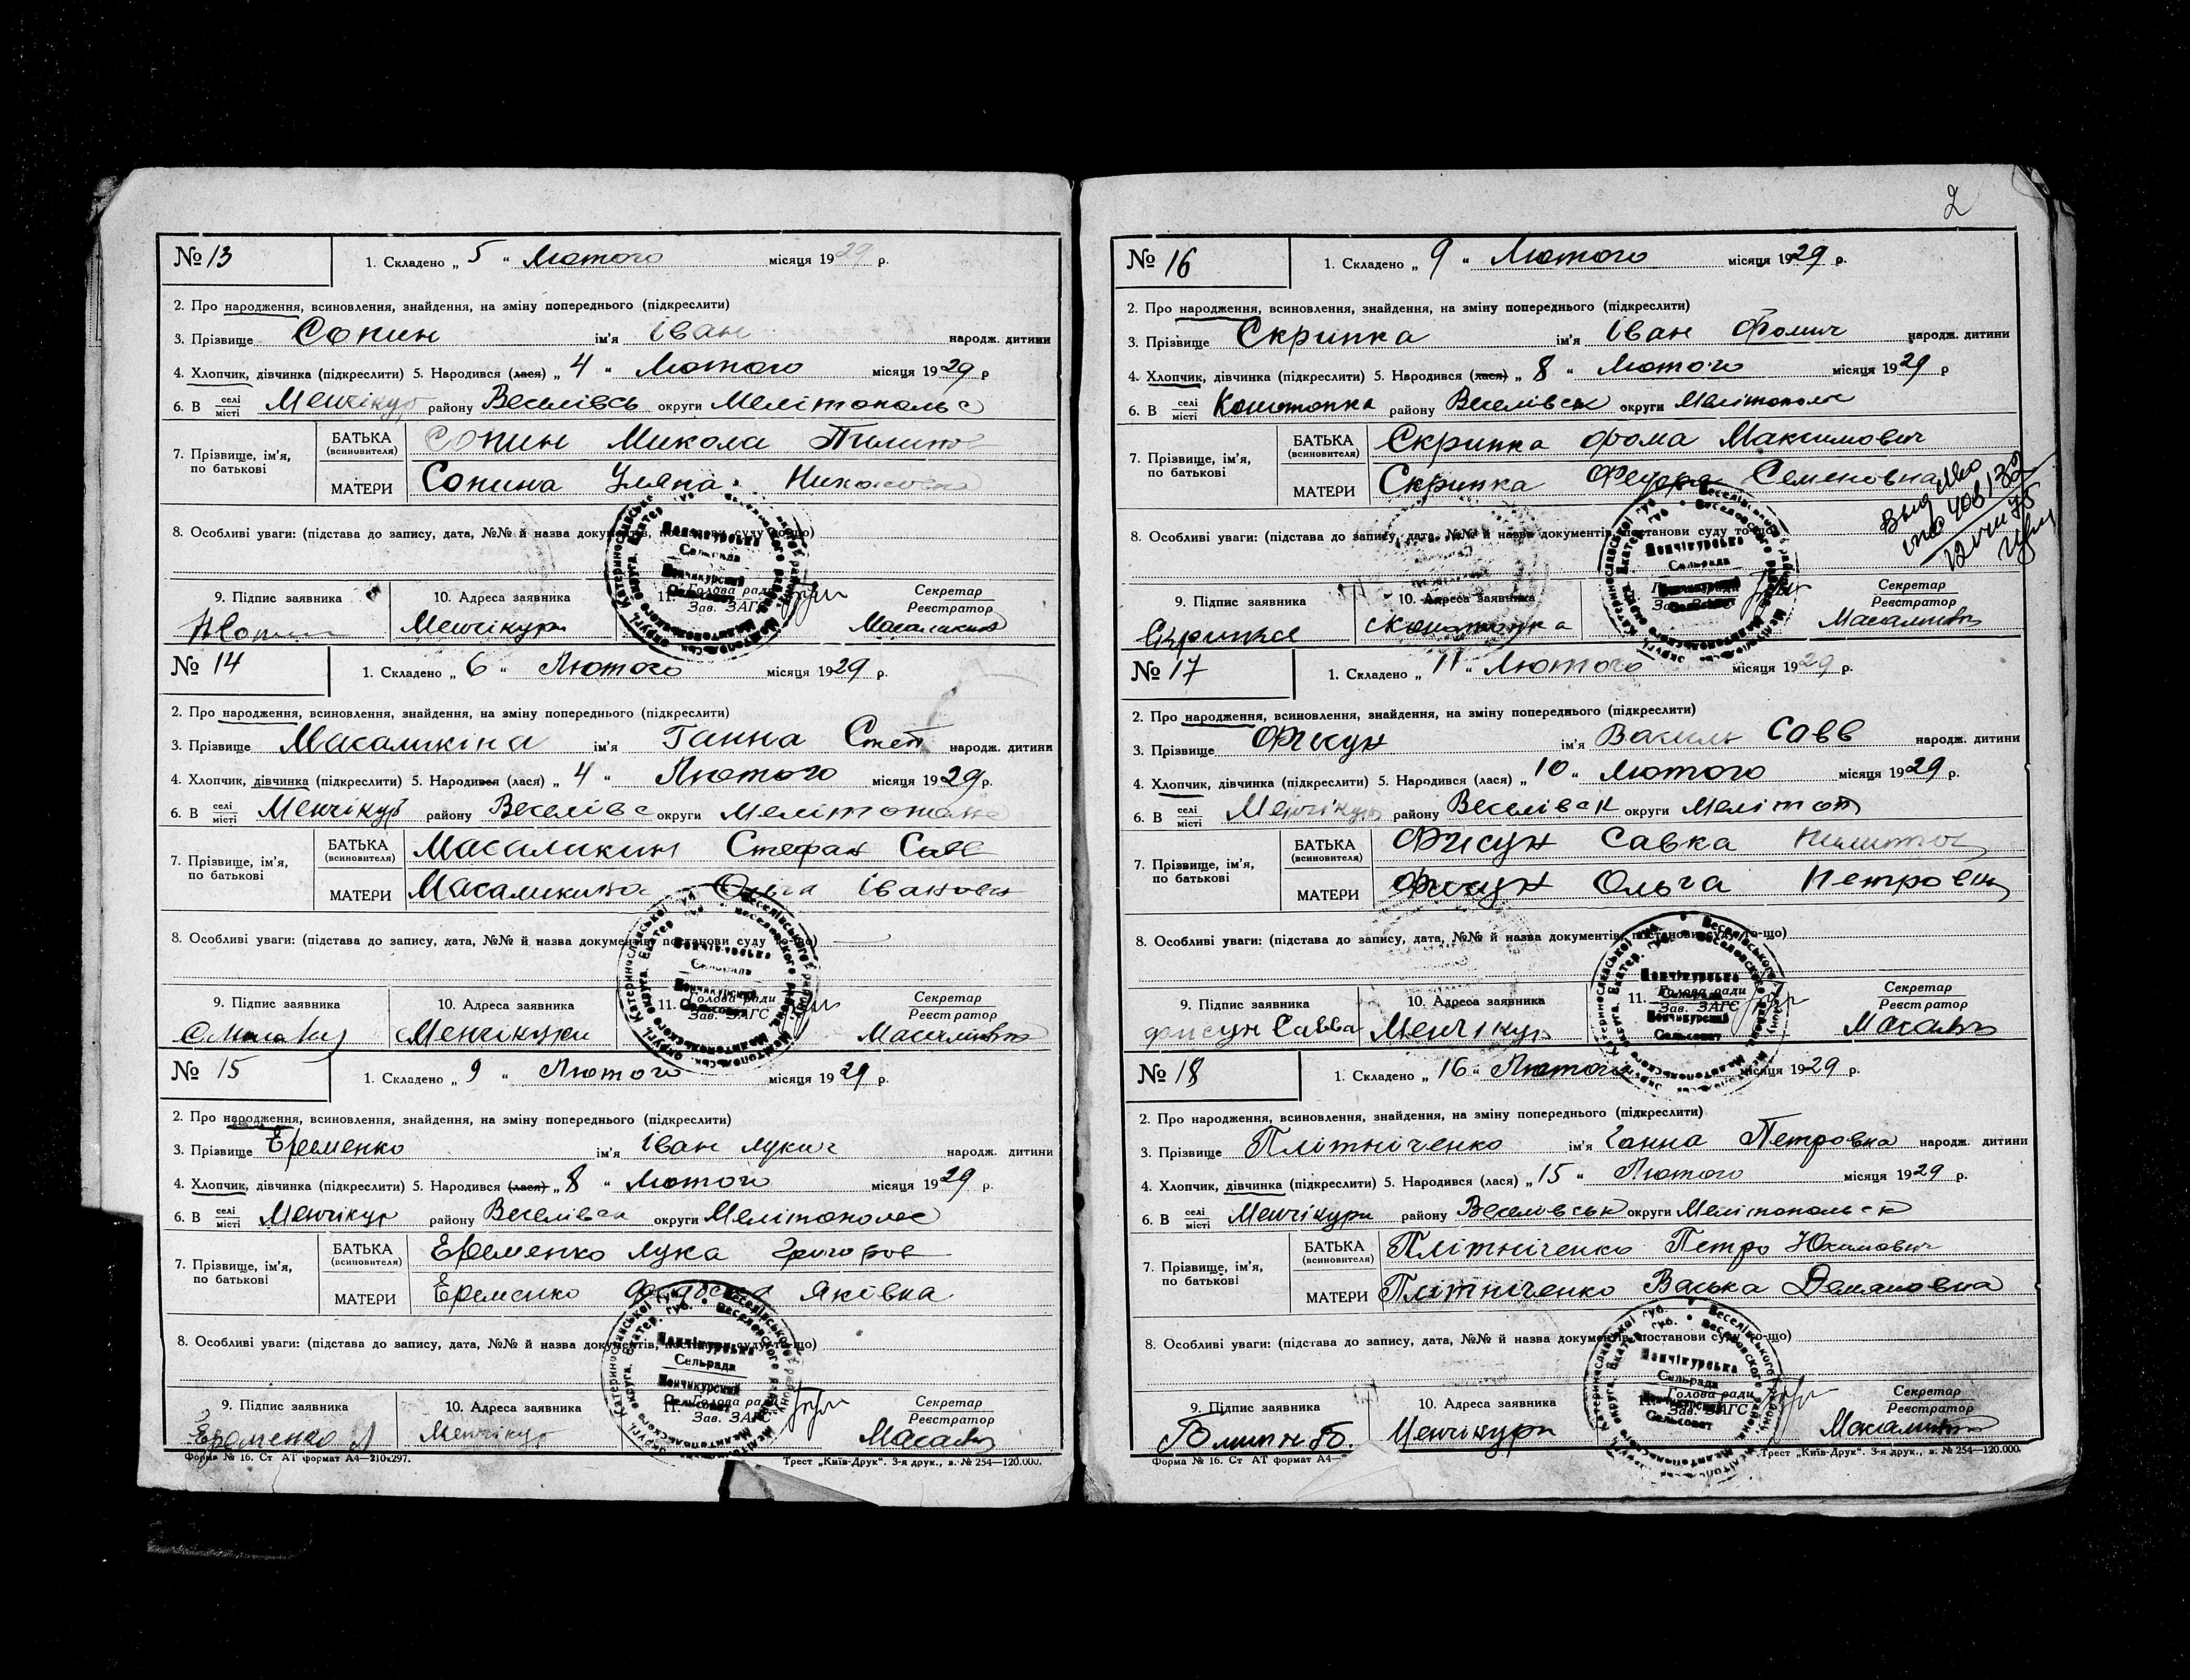 № 13
1. Складено „ 5 “ Лютого місяця 1929 р.
2. Про народження, всиновлення, знайдення, на зміну попереднього (підкреслити)
3. Прізвище Сопин ім'я Іван народж. дитини
4. Хлопчик, дівчинка (підкреслити) 5. Народився (лася) „ 4 “ Лютого місяця 1929 р
6. В селі місті Менчікур району Веселівсь округи Мелітопольс
7. Прізвище, ім'я, по батькові
БАТЬКА (всиновителя) Сопин Микола
МАТЕРИ Сопина Уляна
8. Особливі уваги: (підстава до запису, дата, №№ й назва документів, постанови суду то-що)
9. Підпис заявника 10. Адреса заявника 11. Голова ради Зав. ЗАГС Секретар Реєстратор
Менчікури
№ 14
1. Складено „ 6 “ Лютого місяця 1929 р.
2. Про народження, всиновлення, знайдення, на зміну попереднього (підкреслити)
3. Прізвище Масаликіна ім'я Ганна Степ народж. дитини
4. Хлопчик, дівчинка (підкреслити) 5. Народився (лася) „ 4 “ Лютого місяця 1929 р.
6. В селі місті Менчікур району Веселівс округи
7. Прізвище, ім'я, по батькові
БАТЬКА (всиновителя) Масаликин Стефан Савв
МАТЕРИ Масаликина Ольга Івановна
8. Особливі уваги: (підстава до запису, дата, №№ й назва документів, постанови суду то-що)
9. Підпис заявника 10. Адреса заявника 11. Голова ради Зав. ЗАГС Секретар Реєстратор
Менчікури
№ 15
1. Складено „ 9 “ Лютого місяця 1929 р.
2. Про народження, всиновлення, знайдення, на зміну попереднього (підкреслити)
3. Прізвище Еременко ім'я Іван Лукич народж. дитини
4. Хлопчик, дівчинка (підкреслити) 5. Народився (лася) „ 8 “ Лютого місяця 1929 р.
6. В селі місті Менчікур району Веселівск округи Мелітопольс
7. Прізвище, ім'я, по батькові
БАТЬКА (всиновителя) Еременко Лука Григоров
МАТЕРИ Еременко Яківна
8. Особливі уваги: (підстава до запису, дата, №№ й назва документів, постанови суду то-що)
9. Підпис заявника 10. Адреса заявника 11. Голова ради Зав. ЗАГС Секретар Реєстратор
Еременко Л Менчікур
Форма № 16. Ст АТ формат А4—210x297. Трест „Київ-Друк“. 3-я друк., в. № 254—120.000.
2
№ 16
1. Складено „ 9 “ Лютого місяця 1929 р.
2. Про народження, всиновлення, знайдення, на зміну попереднього (підкреслити)
3. Прізвище Скрипка ім'я Іван Фомич народж. дитини
4. Хлопчик, дівчинка (підкреслити) 5. Народився (лася) „ 8 “ Лютого місяця 1929 р
6. В селі місті району Веселівск округи Мелітопольс
7. Прізвище, ім'я, по батькові
БАТЬКА (всиновителя) Скрипка Фома Максимович
МАТЕРИ Скрипка Семеновна
8. Особливі уваги: (підстава до запису, дата, №№ й назва документів, постанови суду то-що)
9. Підпис заявника 10. Адреса заявника Секретар Реєстратор
Скрипка
№ 17
1. Складено „ 11 “ Лютого місяця 1929 р.
2. Про народження, всиновлення, знайдення, на зміну попереднього (підкреслити)
3. Прізвище Фисун ім'я Василь Савв народж. дитини
4. Хлопчик, дівчинка (підкреслити) 5. Народився (лася) „ 10 “ Лютого місяця 1929 р.
6. В селі місті Менчікур району Веселівск округи Меліто
7. Прізвище, ім'я, по батькові
БАТЬКА (всиновителя) Фисун Савка
МАТЕРИ Фисун Ольга Петровна
8. Особливі уваги: (підстава до запису, дата, №№ й назва документів, постанови суду то-що)
9. Підпис заявника 10. Адреса заявника 11. Голова ради Зав. ЗАГС Секретар Реєстратор
фисун Савва Менчікур
№ 18
1. Складено „ 16 “ Лютого місяця 1929 р.
2. Про народження, всиновлення, знайдення, на зміну попереднього (підкреслити)
3. Прізвище Плітніченко ім'я Ганна Петровна народж. дитини
4. Хлопчик, дівчинка (підкреслити) 5. Народився (лася) „ 15 “ Лютого місяця 1929 р.
6. В селі місті Менчікури району Веселівськ округи Мелітопольск
7. Прізвище, ім'я, по батькові
БАТЬКА (всиновителя) Плітніченко Петро Юхимович
МАТЕРИ Плітніченко Васька Демяновна
8. Особливі уваги: (підстава до запису, дата, №№ й назва документів, постанови суду то-що)
9. Підпис заявника 10. Адреса заявника Голова ради Зав. ЗАГС Секретар Реєстратор
Менчікури
Форма № 16. Ст АТ формат А4— Трест „Київ-Друк“. 3-я друк., в. № 254—120.000.